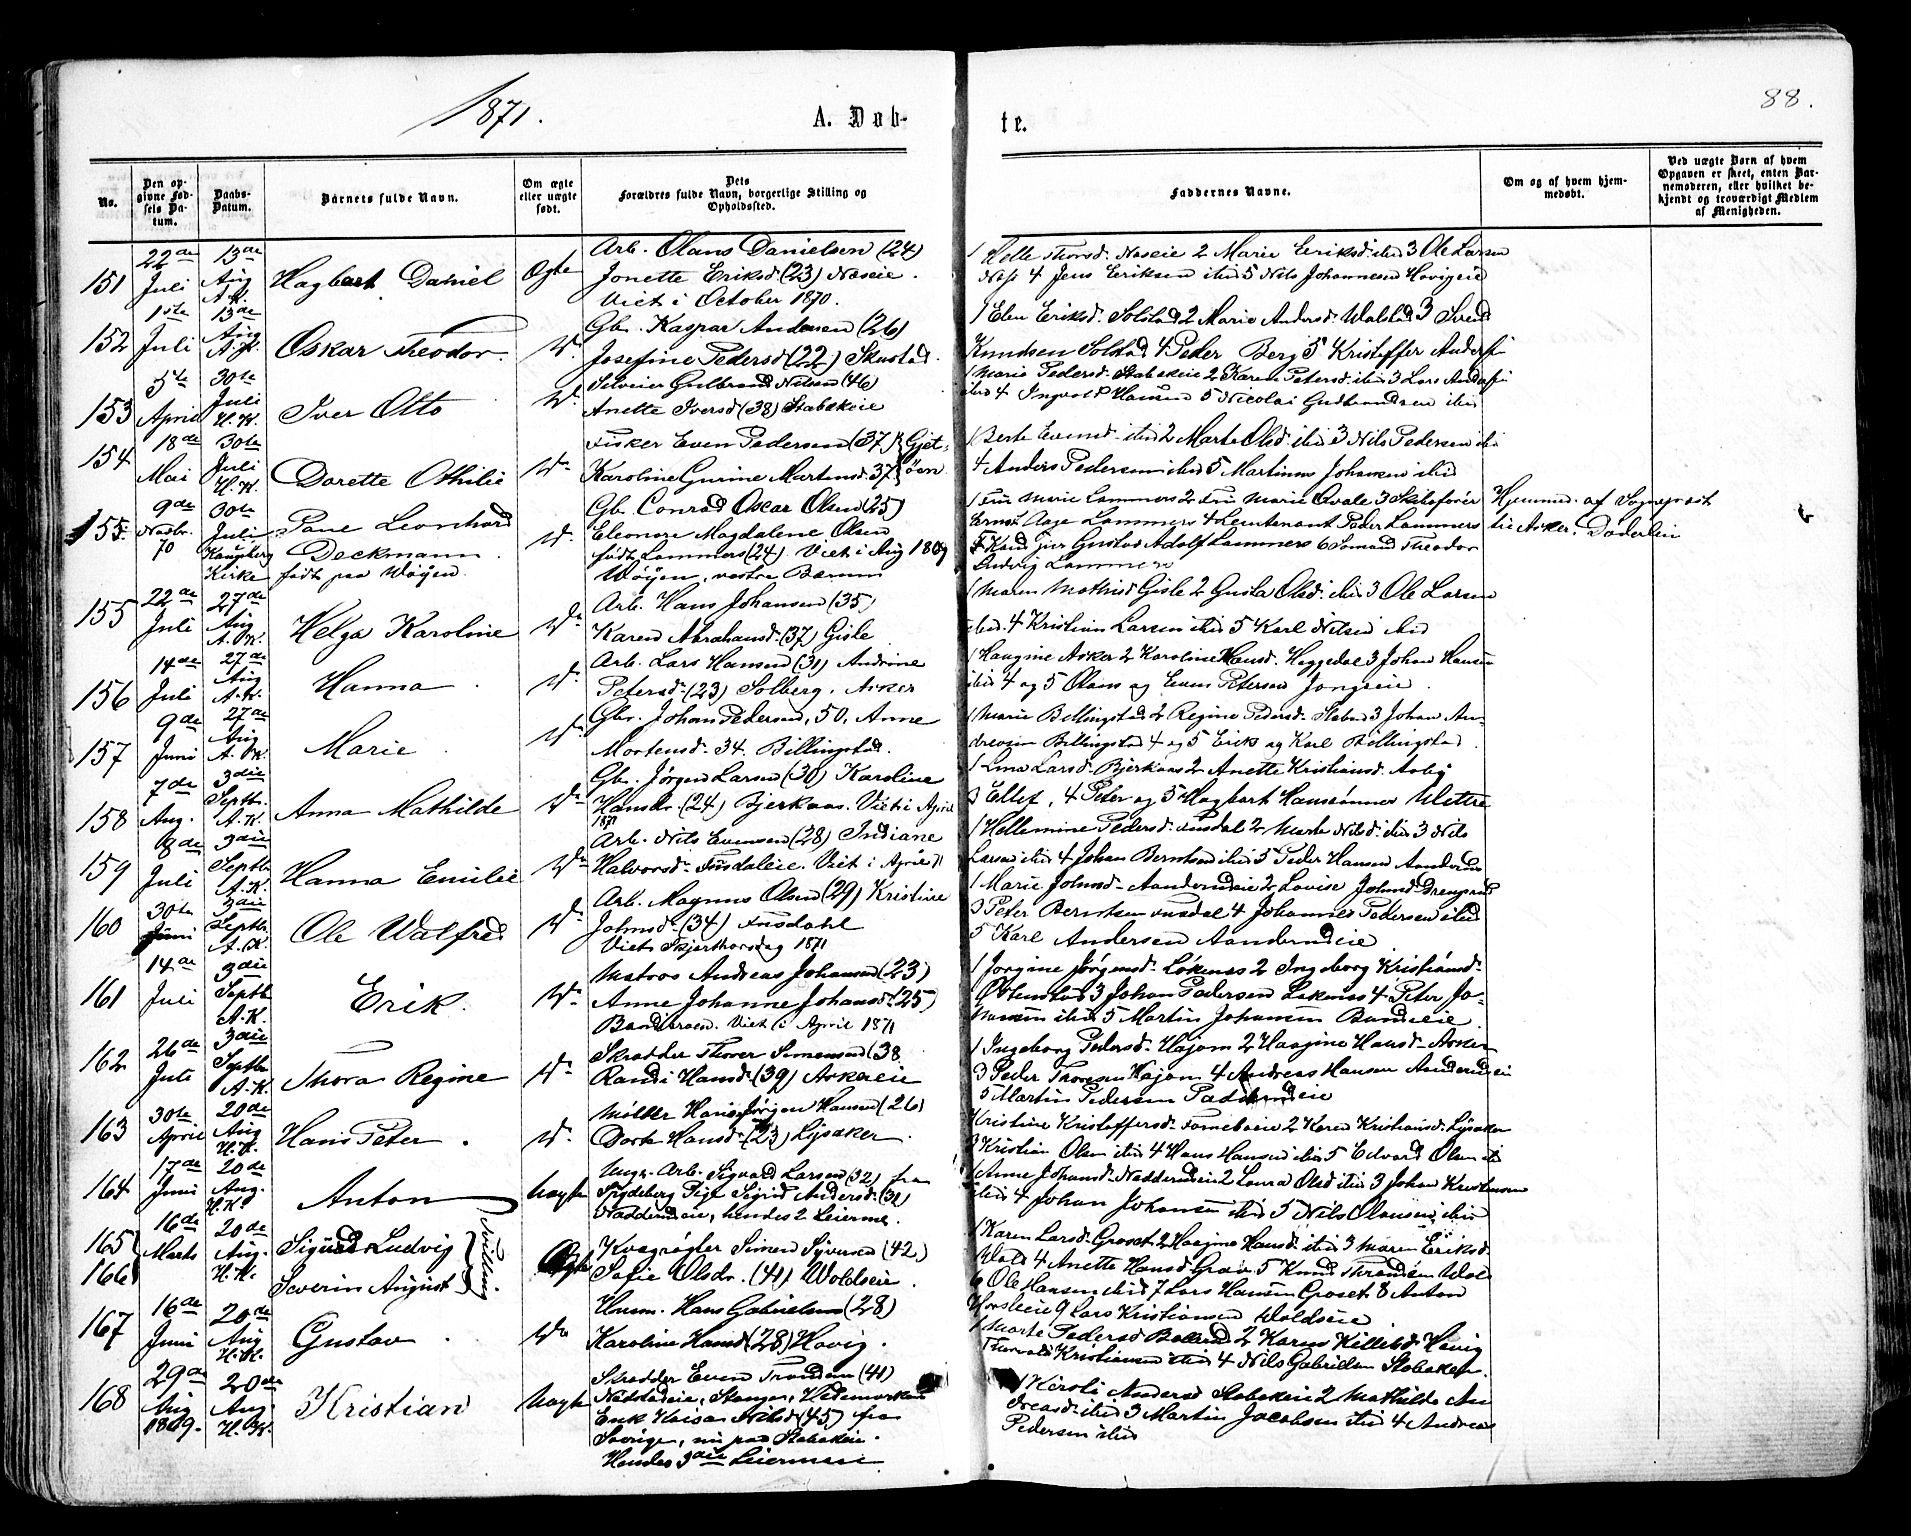 1871.
A. Døb-
te.
88.
No.
Den op-
givne Fød-
sels Da-
tum.
Daabs-
Datum.
Barnets fulde Navn.
Om ægte
eller uægte
født.
Dets
Forældres fulde Navn, borgerlige Stilling og
Opholdssted.
Faddernes Navne.
Om og af hvem hjem-
medøbt.
Ved uægte Børn af hvem
Opgaven er skeet, enten Bar-
nemoderen, eller hvilket be-
kjendt og troværdigt Medlem
af Menigheden.
151
22de
Juli
13de
Aug
A.K.
Hagbart Daniel
Ægte
Arb. Olaus Danielsen (24)
Jonette Eriksd (23) Næseie.
Viet i October 1870.
1 Helle Thorsd. Næseie 2 Marie Eriksd. itid 3 Ole Larsen
Næs 4 Jens Eriksen itid 5 Nils Johannesen Hovigeie
152
1ste
Juli
13de
Aug
A.K.
Oskar Theodor
Do
Gbr. Kaspar Andersen (26)
Josefine Pedersd (22) Skustad.
1 Elen Eriksd. Solstad 2 Marie Andersd. Walstad 3 Svend
Knudsen Solstad 4 Peder Berg 5 Kristoffer Anders
153
5te
April
30te
Juli
H.K.
Iver Otto
Do
Selveier Gulbrand Nilsen (46)
Anette Iversd (38) Stabækeie
1 Marie Pedersd. Stabækeie 2 Karen Petersd. itid 3 Lars Anders
itid 4 Ingvold Hansen 5 Nicolai Gudbrandsen itid
154
18de
Mai
30te
Juli
H.K.
Dorette Othilie
Do
Fisker Even Pedersen (37) Gjet-
Karoline Gurine Martinsd. 37 øen
1 Berte Evensd. itid 2 Marte Olsd. itid 3 Nils Pedersen itid
4 Anders Pedersen itid 5 Martinus Johansen itid
155
9de
Novbr.
70
30te
Juli
Haugberg
Kirke
Paul Leonhard
Deckmann.
født paa Wøyen.
Do
Gb. Conrad Oscar Olsen (25)
Eleonore Magdalene Olsen
født Lammers (24). Viet i Aug 1869
Wøyen, vestre Bærum
1 Fru Marie Lammers 2 Fru Marie Qvale 3 Skibsfører
Ernst Aage Lammers 4 Leutenant Peder Lammers
5 Kand Gustav Adolf Lammers 6 Sømand Theodor
Ludvig Lammers
Hjemmed. af Sognepræst
til Asker. Døderlein
155
22de
Juli
27de
Aug
A.K.
Helga Karoline
Do
Arb. Hans Johansen (35)
Karen Abrahamsd. (37) Gisle
1 Maren Mathisd Gisle 2 Gusta Olsd. itid 3 Ole Larsen
itid. 4 Kristian Larsen itid 5 Karl Nilsen itid
156
14de
Juli
27de
Aug
A.K.
Hanna
Do
Arb. Lars Hansen (31) Andrine
Petersd. (23) Solberg. Asker
1 Haagine Asker 2 Karoline Hansd. Heggedal 3 Johan Hansen
itid 4 og 5 Olaus og Even Petersen Jongseie.
157
9de
Juni
27de
Aug
A.K.
Marie
Do
Gbr. Johan Pedersen, 50, Anne
Mortensd. 34. Billingstad.
1 Marie Billingstad 2 Regine Pedersd. Stabæk 3 Johan An-
dreasen Billingstad 4 og 5 Erik og Karl Billingstad.
158
7de
Aug.
3die
Septb.
A.K.
Anna Mathilde
Do
Gb. Jørgen Larsen (30) Karoline
Hansdr. (24) Bjerkaas. Viet i April
1871
1 Lina Larsd. Bjerkaas 2 Anette Kristiansd. Aaby
3 Ellef, 4 Peter og 5 Hagbart Hansønner Wettre
159
8de
Juli
3die
Septb.
A.K.
Hanna Emilie
Do
Arb. Nils Evensen (28) Indiane
Halvorsd. Fusdaleie. Viet i April 71
1 Hellemine Pedersd. Fusdal 2 Marte Nilsd. itid 3 Nils
Larsen itid 4 Johan Berntsen itid 5 Peder Hansen Aanderud
160
30te
Juni
3die
Septb.
A.K.
Ole Walfred
Do
Arb. Magnus Olsen (29) Kristine
Johnsd. (34) Fusdahl
Viet Skjærthorsdag 1871
1 Marie Johnsd. Aanderudeie 2 Lovise Johnsd. Drengsrud
3 Peter Berntsen Fusdal 4 Johannes Pedersen itid
5 Karl Andersen Aanderudeie
161
14de
Juli
3die
Septb
A.K.
Erik
Do
Matros Andreas Johansen (23)
Anne Johanne Johansd. (25)
Viet i April 1871
1 Jorgine Jørgensd. Løkenes 2 Ingeborg Kristiansd.
Østenstad 3 Johan Pedersen Løkenes 4 Peter Jo-
hansen itid 5 Martin Johansen
162
26de
Juli
3die
Septb
A.K.
Thora Regine
Do
Skrædder Thorer Simensen (38
Randi Hansd. (39) Askereie
1 Ingeborg Pedersd. Højom 2 Haagine Hansd. Asker
3 Peder Thoresen Højom 4 Andreas Hansen Aanderudeie
5 Martin Pedersen
163
30te
April
20de
Aug
H.K.
Hans Peter
Do
Møller Hans Jørgen Hansen (26)
Dorte Hansd. (23) Lysaker.
Kristine Kristoffersd. Fornebueie 2 Karen Kristiansd. Lysaker
3 Kristian Olsen itid 4 Hans Hansen itid 5 Edvard Olsen itid
164
17de
Juni
20de
Aug.
H.K.
Anton
Uægte
Ungk. Arb. Sigvard Larsen (32) fra
Spydeberg Pige Sigrid Andersd. (31)
Nadderudeie, hendes 2 Leierm.
1 Anne Johansd. Nadderudeie 2 Laura Olsd itid 3 Johan Kristiansen
itid 4 Johan Johansen itid 5 Nils Olaussen itid
165
166
16de
Marts
20de
Aug.
H.K.
Sigurd Ludvig
Severin August
Tvilling.
Ægte
Kvægrøgter Simen Syversen (42)
Sofie Olsdr. (41) Woldseie.
1 Karen Larsd. Groset 2 Haagine Hansd. itid 3 Maren Eriksd.
Wold 4 Anette Hansd. Grav 5 Knud Throndsen Wold
6 Ole Hansen itid 7 Lars Hansen Groset 8 Anton
Horsleeie 9 Lars Kristiansen Woldseie.
167
16de
Juni
20de
Aug
H.K.
Gustav
Do
Husm. Hans Gabrielsen (28)
Karoline Hansd (28) Høvig.
1 Marte Pedersd Ballerud 2 Karen Killesd. Høvig
Thorvald Kristiansen itid 4 Nils Gabrielsen Stabækeie.
168
29de
Aug
1869.
20de
Aug.
H.K.
Kristian
Uægte
Skrædder Even Trondsen (41)
Nadderudeie, Stange, Hedemarken
Erik Kaisa Nilsd (45) fra
Sverige, nu paa Stabækeie.
Hendes 3die Leiermaal
1 Kersti Andersd Stabækeie 2 Mathilde An
dreasd. itid 3 Martin Jacobsen itid 4 Andreas
Pedersen itid